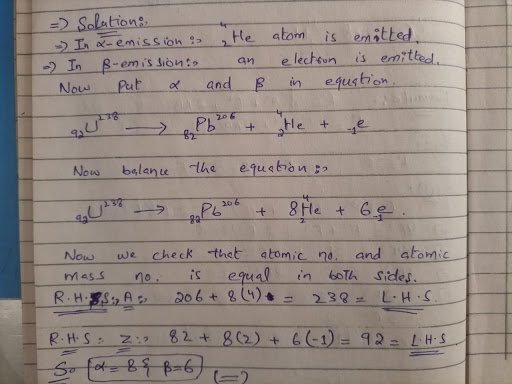 => Solution:-
=> In α-emission :-> ⁴₂He atom is emitted.
=> In β-emission :-> an electron is emitted.
Now Put α and β in equation.
₉₂U²³⁸ → ₈₂Pb²⁰⁶ + ⁴₂He + ₋₁e
Now balance the equation :->
₉₂U²³⁸ → ₈₂Pb²⁰⁶ + 8⁴₂He + 6 ₋₁e .
Now we check that atomic no. and atomic
mass no. is equal in both sides.
R.H.S:, A:, 206 + 8(4) = 238 = L.H.S.
R.H.S: Z:-> 82 + 8(2) + 6(-1) = 92 = L.H.S
So α = 8 & β = 6 (=)